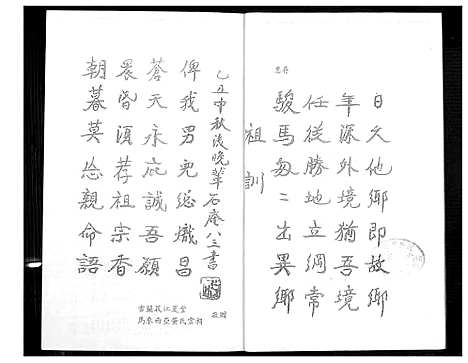 惠存
祖訓
駿馬匆匆出異鄉
任從勝地立綱常
年深外境猶吾境
日久他鄉即故鄉
朝暮莫忘親命語
晨昏須荐祖宗香
蒼天永庇誠吾願
俾我男兒總熾昌
乙丑中秋後晚輩石庵八三書
雪蘭莪江夏堂
馬來西亞黃氏
敬贈